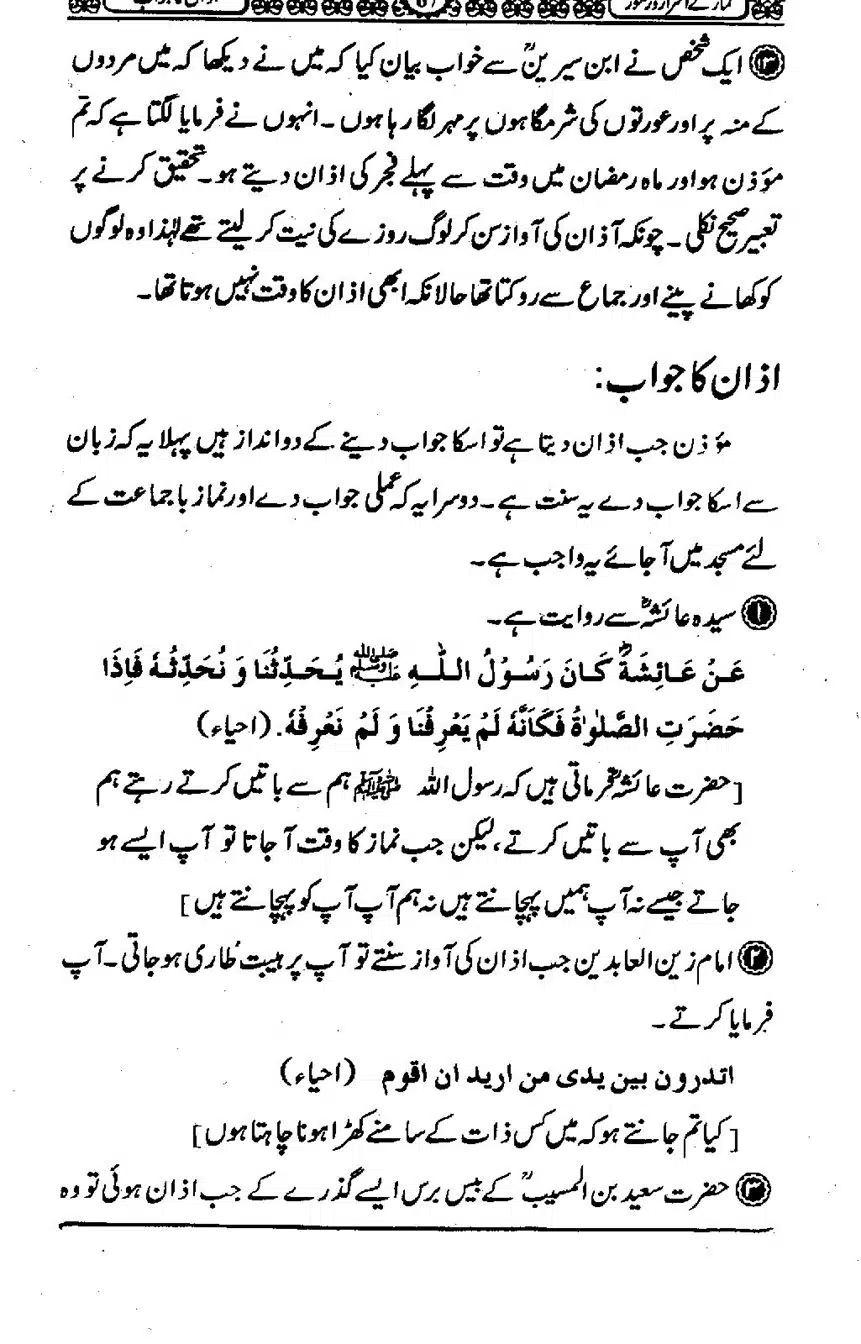 نماز کے اسرار و رموز
⑬ ایک شخص نے ابن سیرینؒ سے خواب بیان کیا کہ میں نے دیکھا کہ میں مردوں
کے منہ پر اور عورتوں کی شرمگاہوں پر مہر لگا رہا ہوں۔ انہوں نے فرمایا لگتا ہے کہ تم
مؤذن ہو اور ماہ رمضان میں وقت سے پہلے فجر کی اذان دیتے ہو۔ تحقیق کرنے پر
تعبیر صحیح نکلی۔ چونکہ آذان کی آواز سن کر لوگ روزے کی نیت کر لیتے تھے لہٰذا وہ لوگوں
کو کھانے پینے اور جماع سے روکتا تھا حالانکہ ابھی اذان کا وقت نہیں ہوتا تھا۔
اذان کا جواب:
مؤذن جب اذان دیتا ہے تو اسکا جواب دینے کے دو انداز ہیں پہلا یہ کہ زبان
سے اسکا جواب دے یہ سنت ہے۔ دوسرا یہ کہ عملی جواب دے اور نماز با جماعت کے
لئے مسجد میں آ جائے یہ واجب ہے۔
① سیدہ عائشہؓ سے روایت ہے۔
عَنْ عَائِشَةَؓ كَانَ رَسُوْلُ اللّٰهِ ﷺ يُحَدِّثُنَا وَ نُحَدِّثُهٗ فَاِذَا
حَضَرَتِ الصَّلٰوةُ فَكَاَنَّهٗ لَمْ يَعْرِفْنَا وَ لَمْ نَعْرِفْهُ. (احیاء)
[حضرت عائشہؓ فرماتی ہیں کہ رسول اللہ ﷺ ہم سے باتیں کرتے رہتے ہم
بھی آپ سے باتیں کرتے، لیکن جب نماز کا وقت آ جاتا تو آپ ایسے ہو
جاتے جیسے نہ آپ ہمیں پہچانتے ہیں نہ ہم آپ آپ کو پہچانتے ہیں]
② امام زین العابدین جب اذان کی آواز سنتے تو آپ پر ہیبت طاری ہو جاتی۔ آپ
فرمایا کرتے۔
اتدرون بین یدی من ارید ان اقوم (احیاء)
[کیا تم جانتے ہو کہ میں کس ذات کے سامنے کھڑا ہونا چاہتا ہوں]
③ حضرت سعید بن المسیبؒ کے بیس برس ایسے گذرے کے جب اذان ہوئی تو وہ